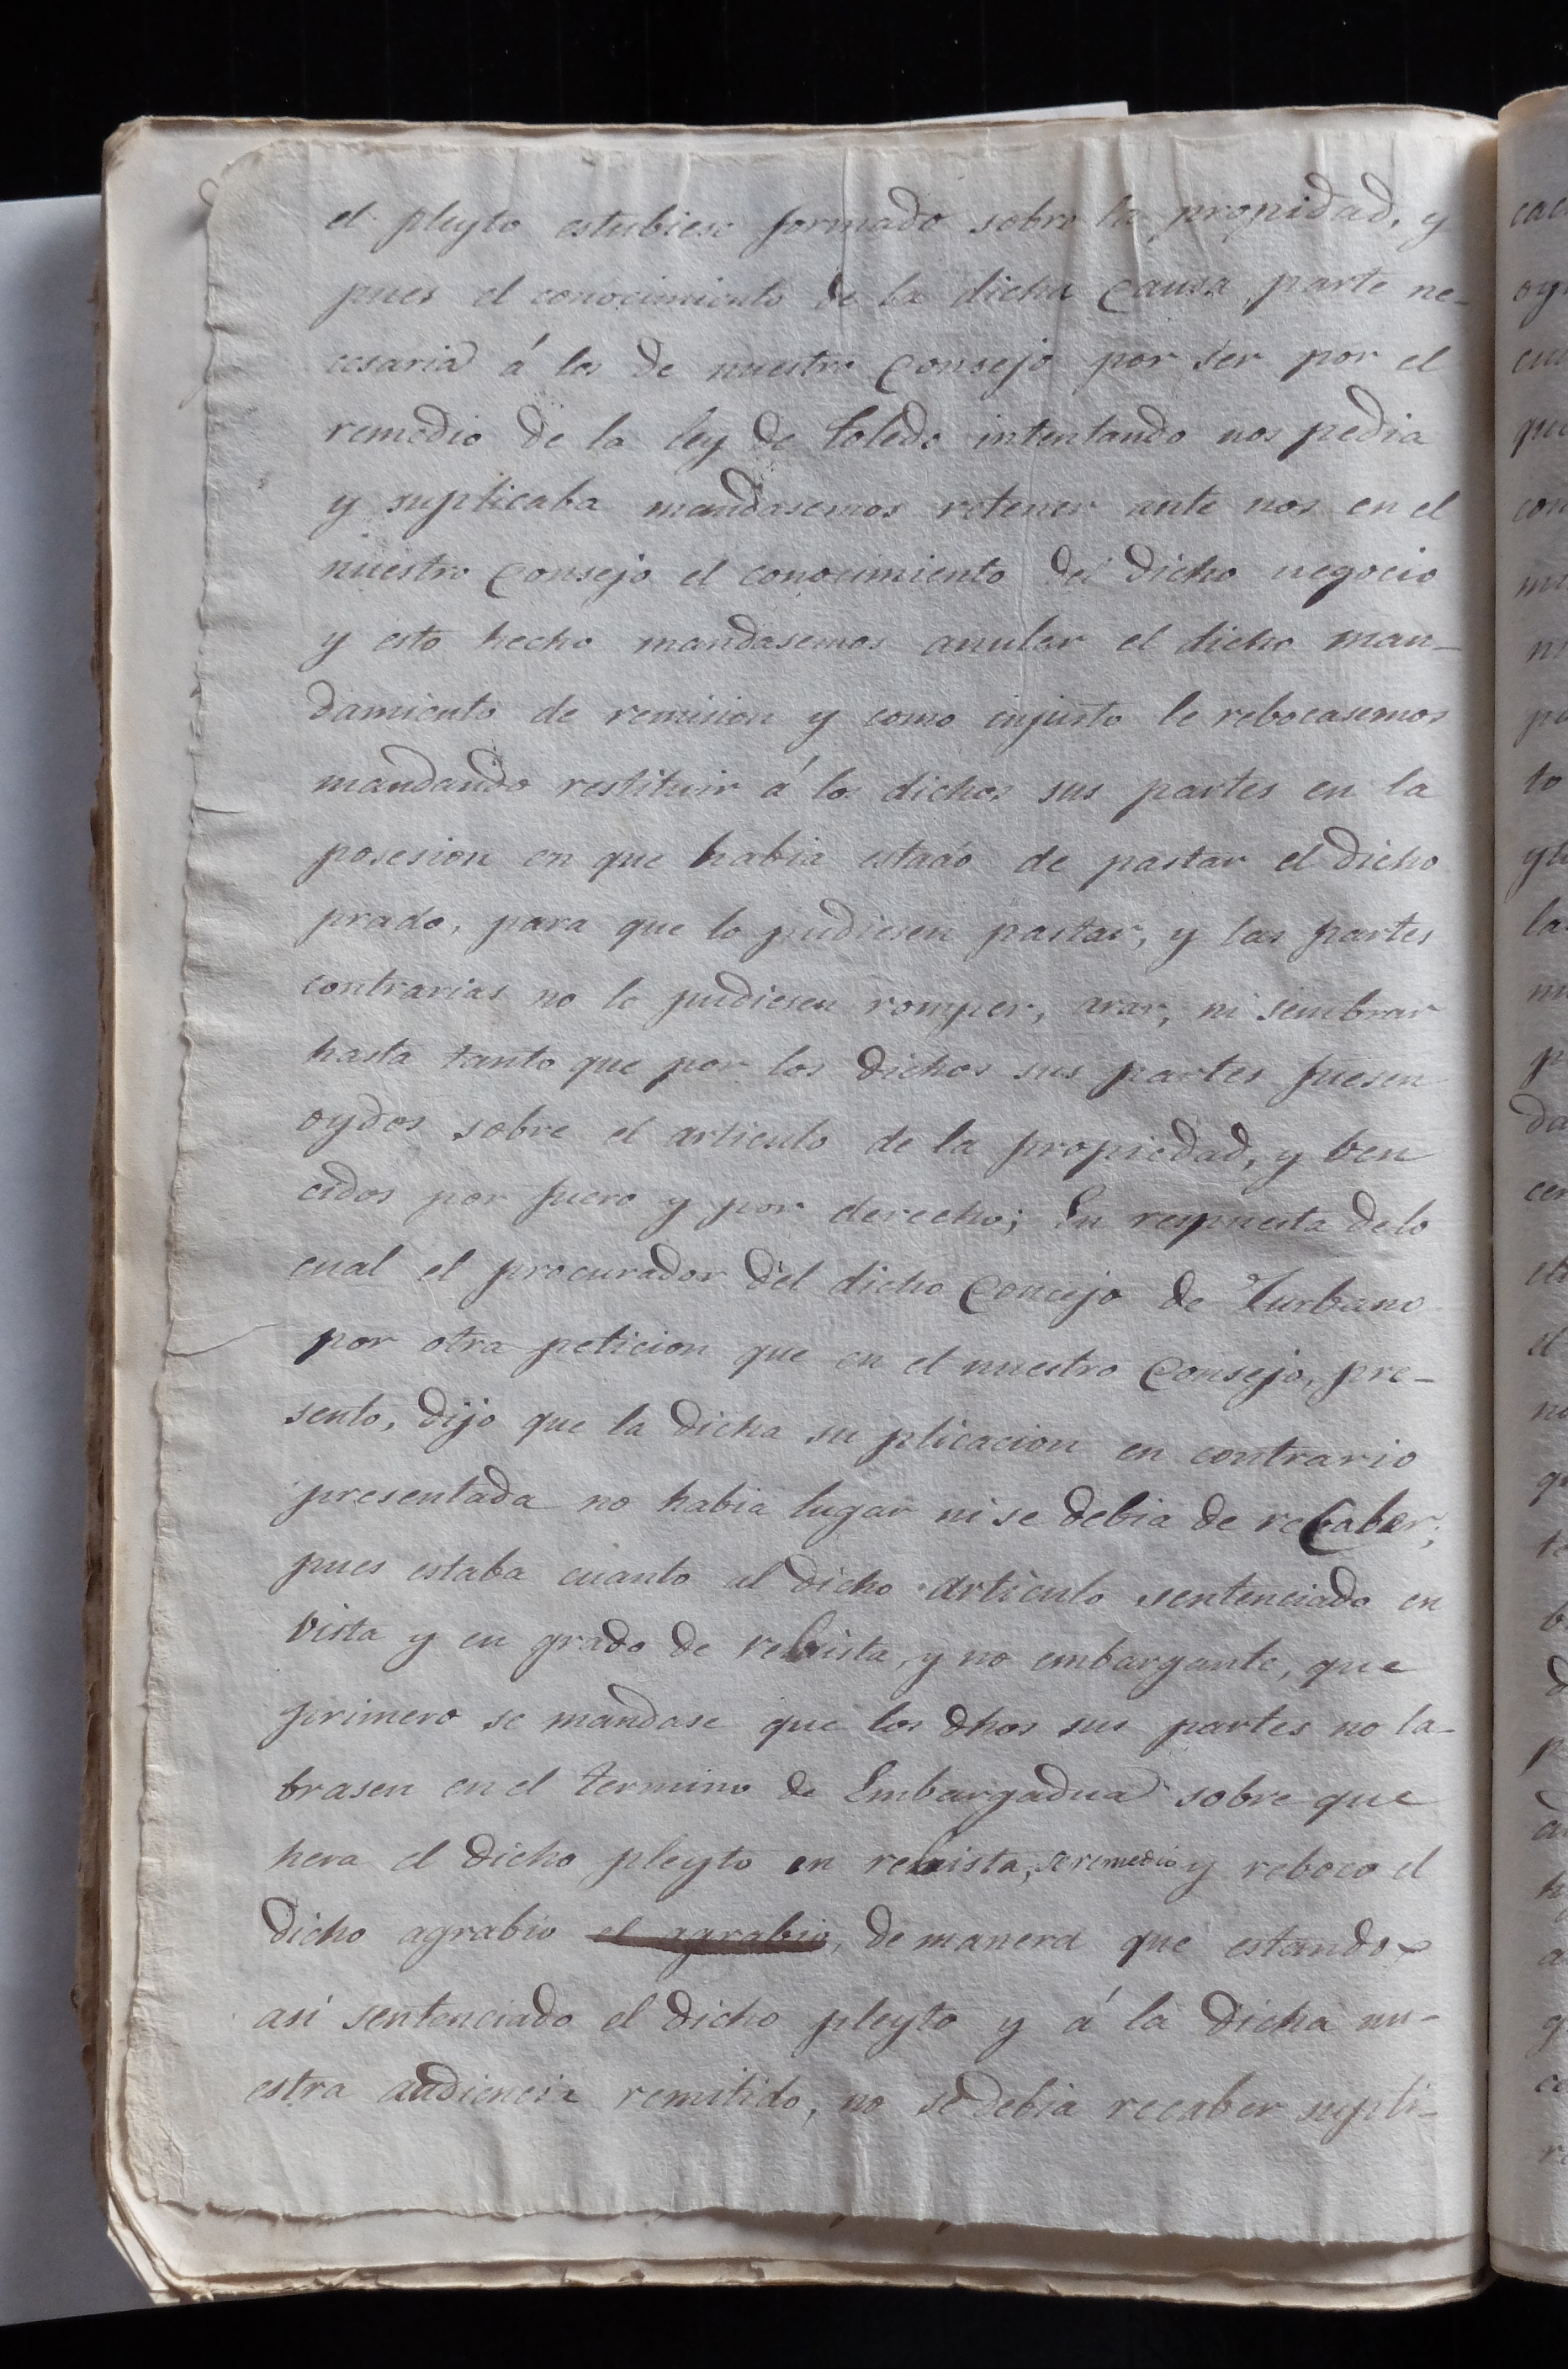 el pleyto estubiese formado sobre la propidad, y
pues el conocimiento de la dicha Causa parte ne-
cesaria á los de nuestro Consejo por ser por el
remedio de la ley de toledo intentando nos pedia
y suplicaba mandasemos retener ante nos en el
nuestro Consejo el conocimiento del dicho negocio
y esto hecho mandasemos anular el dicho man-
damiento de remision y como injusto le rebocasemos
mandando restituir á los dichos sus partes en la
posesion en que habia estado de pastar el dicho
prado, para que lo pudiesen pastar, y las partes
contrarias no le pudiesen romper, arar, ni sembrar
hasta tanto que por los dichos sus partes fuesen
oydos sobre el articulo de la propiedad, y ben
cidos por fuero y por derecho; En respuesta de lo
cual el procurador del dicho Concejo de Zurbano
por otra peticion que en el nuestro Consejo, pre-
sento, dijo que la dicha su plicacion en contrario
presentada no habia lugar ni se debia de recaber;
pues estaba cuanto al dicho articulo sentenciado en
vista y en grado de rebista, y no embargante, que
primero se mandase que los dhos sus partes no la-
brasen en el termino de Embargadua sobre que
hera el dicho pleyto en rebista, se remedio y reboco el
dicho agrabio el agrabio, de manera que estando
asi sentenciado el dicho pleyto y á la dicha nu-
estra audiencia remitido, no se debia recaber supli-